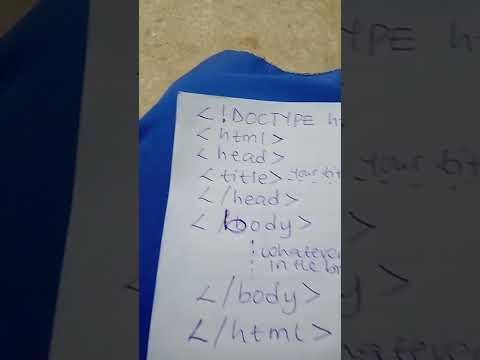 <!DOCTYPE h
<html>
<head>
<title> your tit
</head>
</body>
whatever
in the br
</body>
</html>